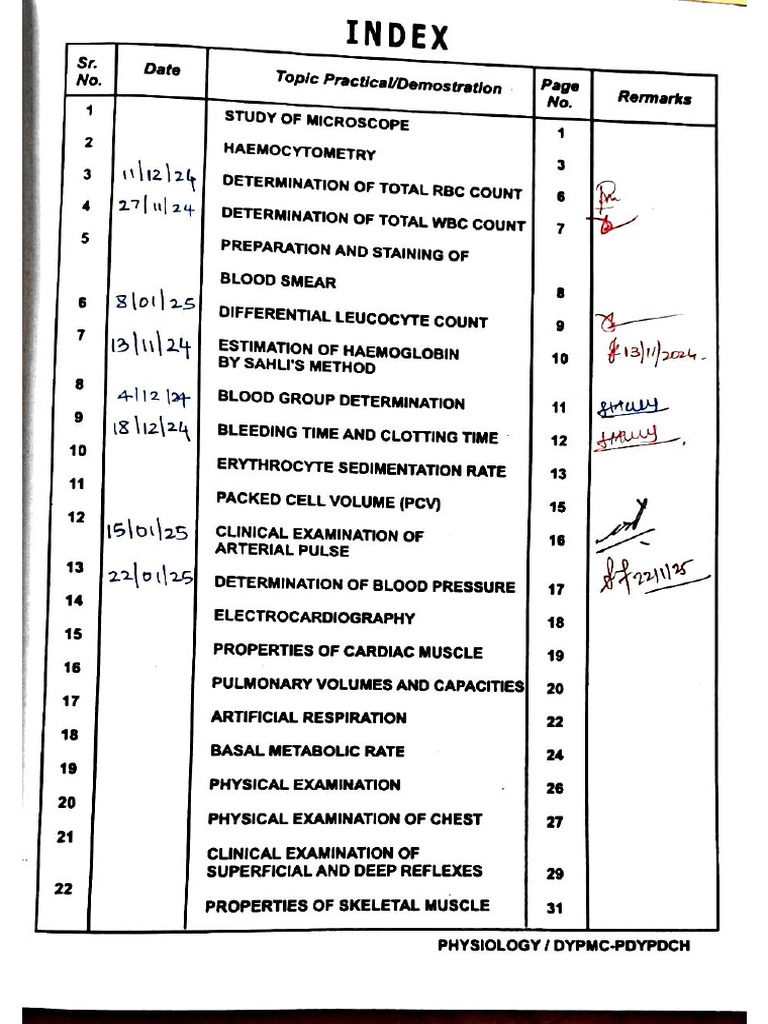 INDEX
Sr. No. Date Topic Practical/Demostration Page No. Rermarks
1 STUDY OF MICROSCOPE 1
2 HAEMOCYTOMETRY 3
3 11/12/24 DETERMINATION OF TOTAL RBC COUNT 6
4 27/11/24 DETERMINATION OF TOTAL WBC COUNT 7
5 PREPARATION AND STAINING OF
BLOOD SMEAR 8
6 8/01/25 DIFFERENTIAL LEUCOCYTE COUNT 9
7 13/11/24 ESTIMATION OF HAEMOGLOBIN 10 13/11/2024.
BY SAHLI'S METHOD
8 4/12/24 BLOOD GROUP DETERMINATION 11
9 18/12/24 BLEEDING TIME AND CLOTTING TIME 12
10 ERYTHROCYTE SEDIMENTATION RATE 13
11 PACKED CELL VOLUME (PCV) 15
12 15/01/25 CLINICAL EXAMINATION OF 16
ARTERIAL PULSE
13 22/01/25 DETERMINATION OF BLOOD PRESSURE 17 22/1/25
14 ELECTROCARDIOGRAPHY 18
15 PROPERTIES OF CARDIAC MUSCLE 19
16 PULMONARY VOLUMES AND CAPACITIES 20
17 ARTIFICIAL RESPIRATION 22
18 BASAL METABOLIC RATE 24
19 PHYSICAL EXAMINATION 26
20 PHYSICAL EXAMINATION OF CHEST 27
21 CLINICAL EXAMINATION OF
SUPERFICIAL AND DEEP REFLEXES 29
22 PROPERTIES OF SKELETAL MUSCLE 31
PHYSIOLOGY / DYPMC-PDYPDCH